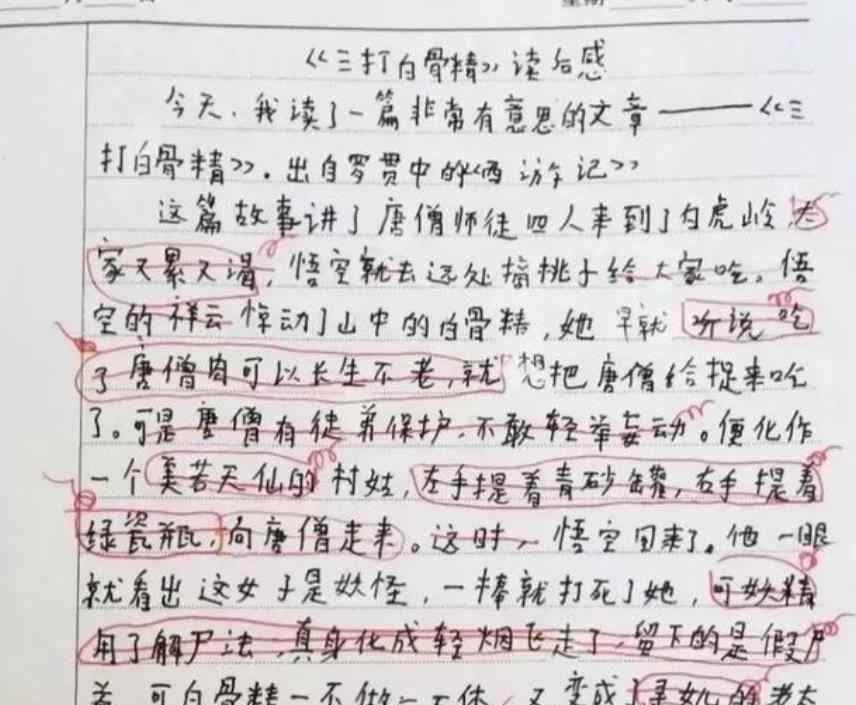 《三打白骨精》读后感
今天,我读了一篇非常有意思的文章——《三
打白骨精》。出自罗贯中的《西游记》
这篇故事讲了唐僧师徒四人来到了白虎岭,大
家又累又渴,悟空就去远处摘桃子给大家吃。悟
空的祥云惊动了山中的白骨精,她早就听说吃
了唐僧肉可以长生不老,就想把唐僧给捉来吃
了。可是唐僧有徒弟保护,不敢轻举妄动。便化作
一个美若天仙的村姑,左手提着青砂罐,右手提着
绿瓷瓶,向唐僧走来。这时,悟空回来了。他一眼
就看出这女子是妖怪,一棒就打死了她,可妖精
用了解尸法,真身化成轻烟飞走了,留下的是假尸
可白骨精一不做二不休,又变成了